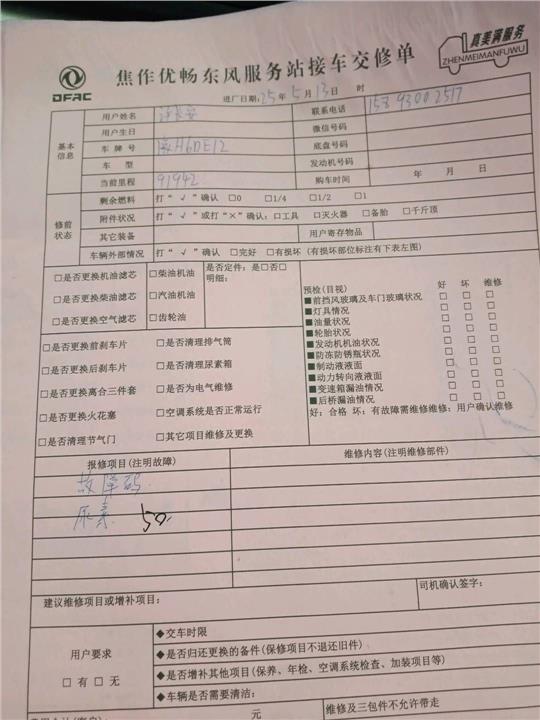 DFAC
焦作优畅东风服务站接车交修单
真美满服务
ZHENMEIMANFUWU
进厂日期:25年5月13日 时
基本信息
用户姓名
联系电话 15893002517
用户生日
微信号码
车牌号 H6DE12
底盘号码
车型
发动机号码
当前里程 91942
购车时间 年 月 日
修前状态
剩余燃料 打“√”确认 □0 □1/4 □1/2 □1
附件状况 打“√”或打“×”确认:□工具 □灭火器 □备胎 □千斤顶
其它装备
用户寄存物品
车辆外部情况 打“√”确认 □完好 □有损坏(有损坏部位标注有下表左图)
□是否更换机油滤芯 □柴油机油
□是否更换柴油滤芯 □汽油机油
□是否更换空气滤芯 □齿轮油
是否定件:是□否□
明细:
□是否更换前刹车片 □是否清理排气筒
□是否更换后刹车片 □是否清理尿素箱
□是否更换离合三件套 □是否为电气维修
□是否更换火花塞 □空调系统是否正常运行
□是否清理节气门 □其它项目维修及更换
预检(目视) 好 坏 维修
■前挡风玻璃及车门玻璃状况 □ □ □
■灯具情况 □ □ □
■油量状况 □ □ □
■轮胎状况 □ □ □
■发动机机油状况 □ □ □
■防冻防锈瓶状况 □ □ □
■制动液液面 □ □ □
■动力转向液液面 □ □ □
■变速箱漏油情况 □ □ □
■后桥漏油情况 □ □ □
好:合格 坏:有故障需维修维修:用户确认维修
报修项目(注明故障)
维修内容(注明维修部件)
故障码
尿素 50
建议维修项目或增补项目:
司机确认签字:
用户要求
□有 □无
◆交车时限
◆是否归还更换的备件(保修项目不退还旧件)
◆是否增补其他项目(保养、年检、空调系统检查、加装项目等)
◆车辆是否需要清洁:
元
维修及三包件不允许带走